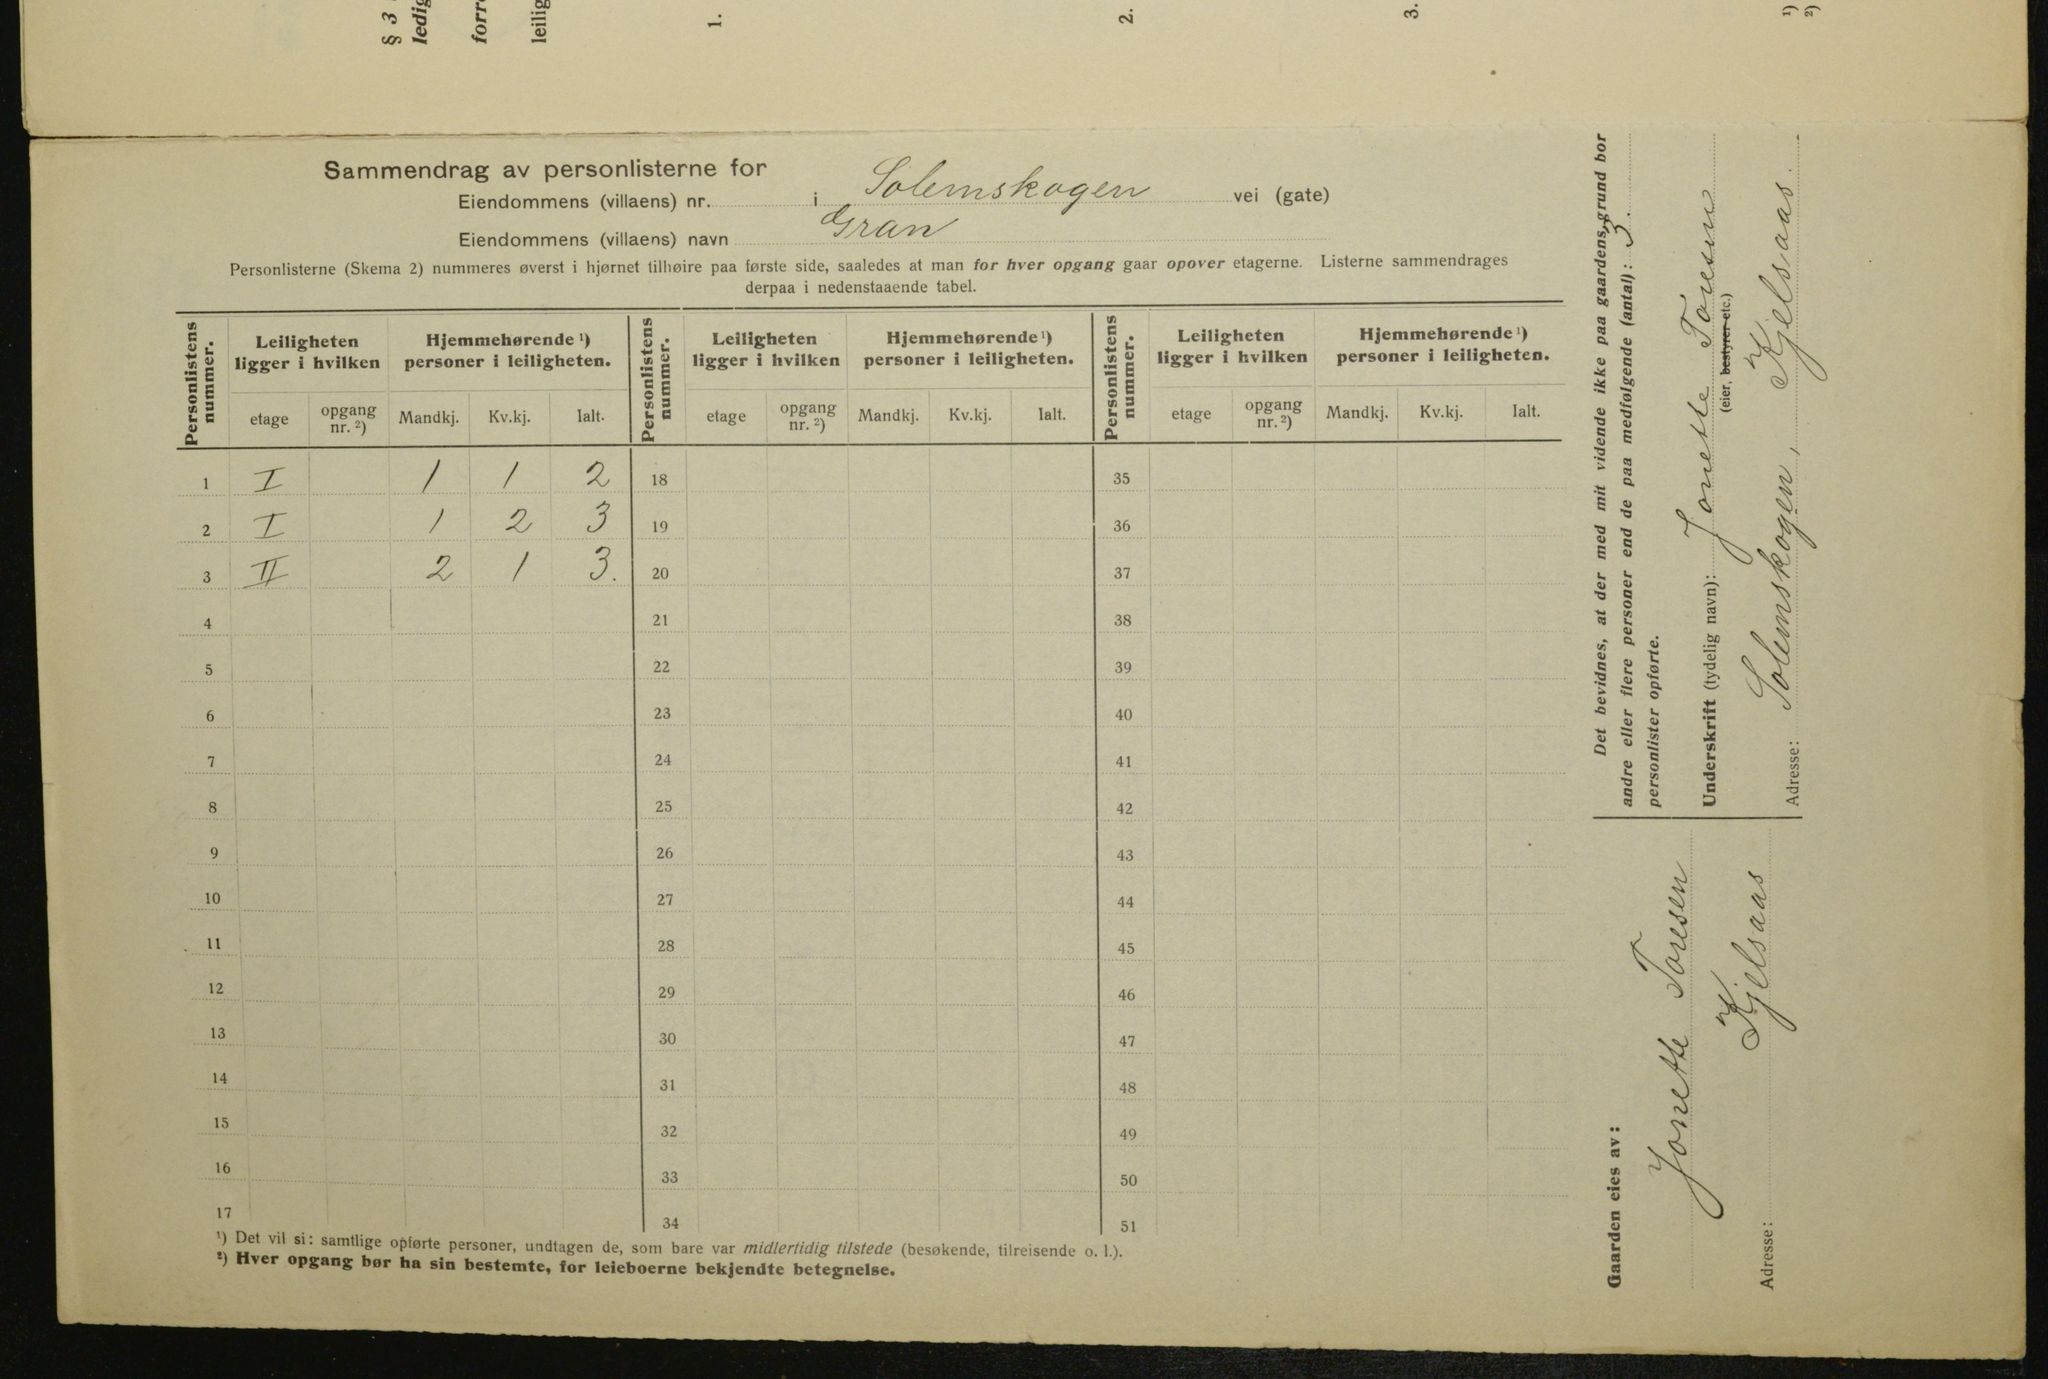 § 3
ledig
forr
leilig
1.
2.
3.
¹)
²)
Sammendrag av personlisterne for
Eiendommens (villaens) nr. i Solemskogen vei (gate)
Eiendommens (villaens) navn Gran
Personlisterne (Skema 2) nummeres øverst i hjørnet tilhøire paa første side, saaledes at man for hver opgang gaar opover etagerne. Listerne sammendrages
derpaa i nedenstaaende tabel.
Personlistens nummer. Leiligheten ligger i hvilken Hjemmehørende ¹) personer i leiligheten. Personlistens nummer. Leiligheten ligger i hvilken Hjemmehørende ¹) personer i leiligheten. Personlistens nummer. Leiligheten ligger i hvilken Hjemmehørende ¹) personer i leiligheten.
etage opgang nr. ²) Mandkj. Kv.kj. Ialt. etage opgang nr. ²) Mandkj. Kv.kj. Ialt. etage opgang nr. ²) Mandkj. Kv.kj. Ialt.
1 I 1 1 2 18 35
2 I 1 2 3 19 36
3 II 2 1 3. 20 37
4 21 38
5 22 39
6 23 40
7 24 41
8 25 42
9 26 43
10 27 44
11 28 45
12 29 46
13 30 47
14 31 48
15 32 49
16 33 50
17 34 51
¹) Det vil si: samtlige opførte personer, undtagen de, som bare var midlertidig tilstede (besøkende, tilreisende o. l.).
²) Hver opgang bør ha sin bestemte, for leieboerne bekjendte betegnelse.
Det bevidnes, at der med mit vidende ikke paa gaardens grund bor
andre eller flere personer end de paa medfølgende (antal): 3.
personlister opførte.
Underskrift (tydelig navn): Jonette Toresen
(eier, bestyrer etc.)
Adresse: Solemskogen, Kjelsaas.
Gaarden eies av:
Jonette Toresen
Adresse: Kjelsaas